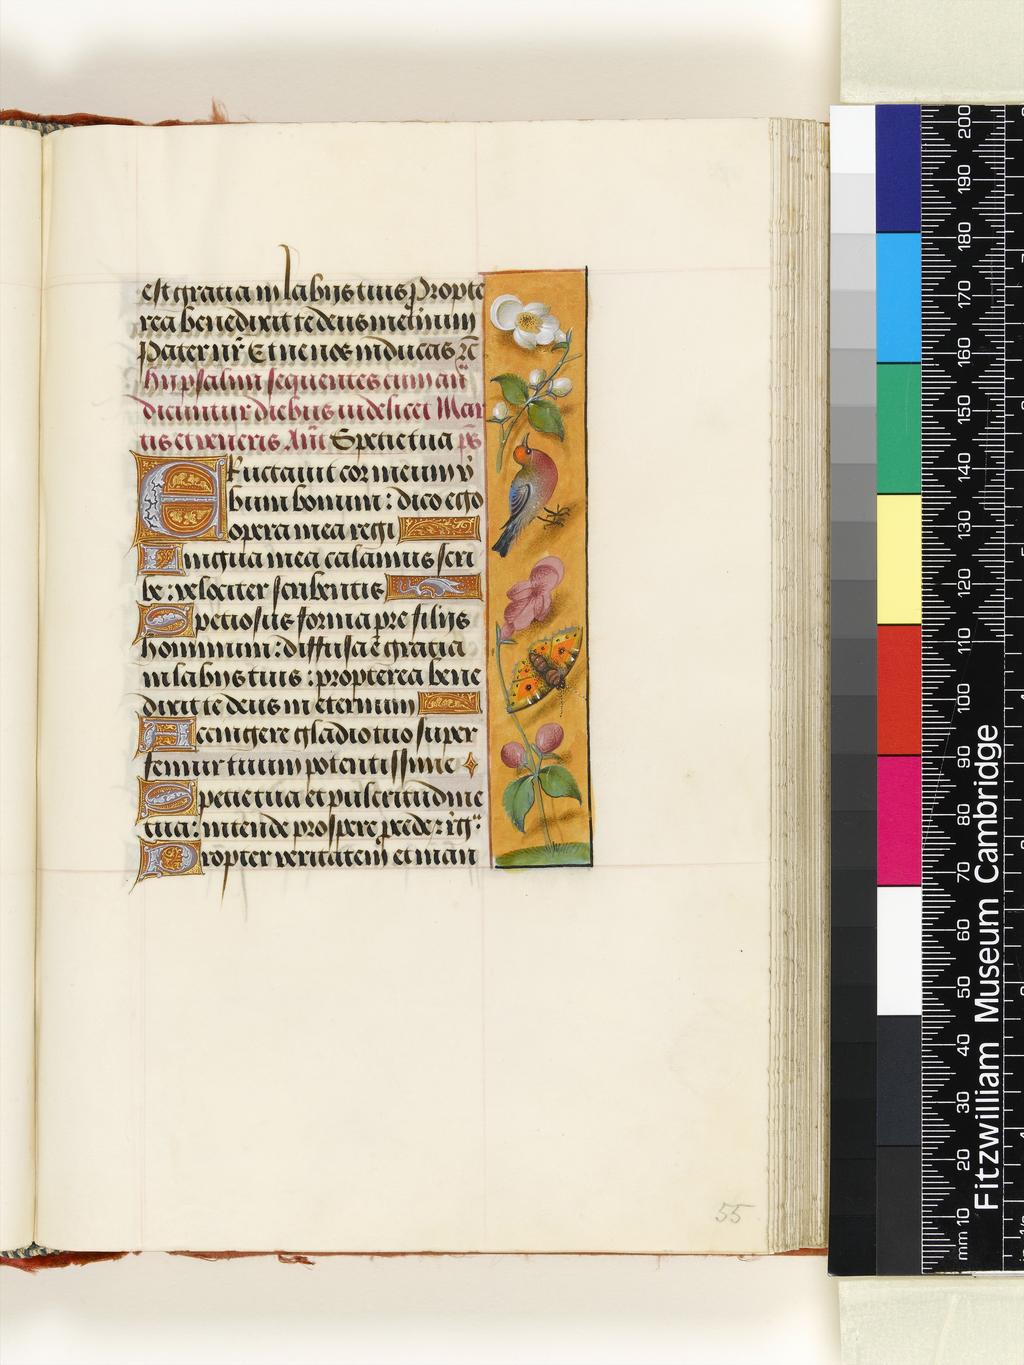 est gratia in labijs tuis Propte
rea benedixit te deus in eternum
Pater nr̄ Et ne nos inducas rc̄
Hij psalmi sequentes cum añ
dicuntur diebus videlicet Mar
tis et veneris Añt Specie tua ps̄
Eructauit cor meum v̄
bum bonum : dico ego
opera mea regi
Lingua mea calamus scri
be : velociter scribentis
Speciosus forma pre filijs
hominum : diffusa ē gratia
in labijs tuis : propterea bene
dixit te deus in eternum
Accingere gladio tuo super
femur tuum potentissime
Specie tua et pulcritudine
tua : intende prospere
Propter veritatem et man
55
Fitzwilliam Museum Cambridge
mm 10 20 30 40 50 60 70 80 90 100 110 120 130 140 150 160 170 180 190 200